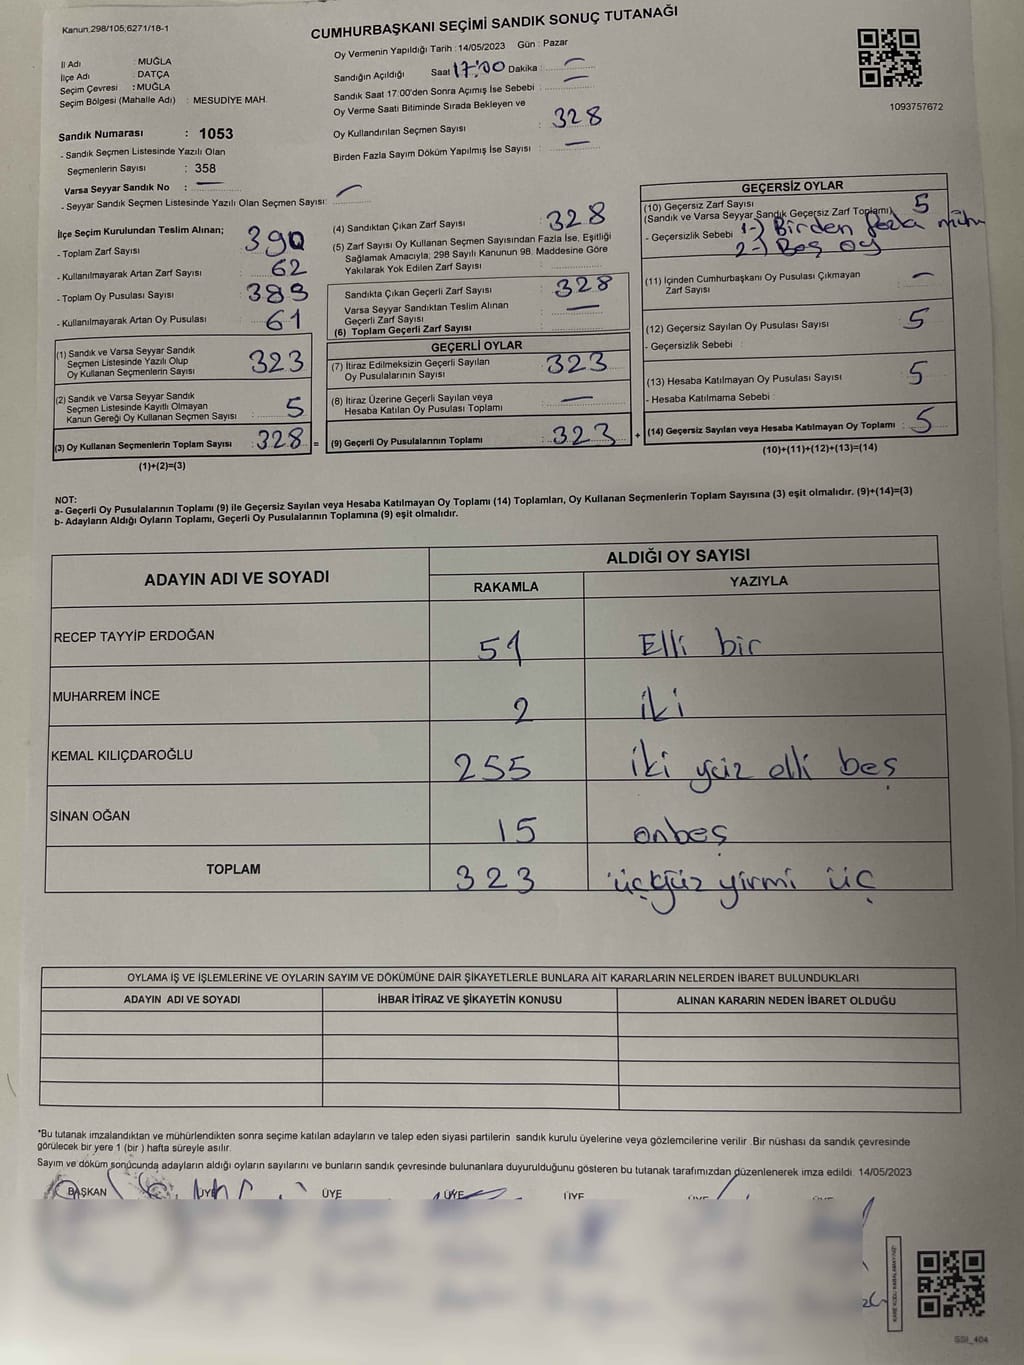 Kanun 298/105,6271/18-1
CUMHURBAŞKANI SEÇİMİ SANDIK SONUÇ TUTANAĞI
İl Adı : MUĞLA
İlçe Adı : DATÇA
Seçim Çevresi : MUĞLA
Seçim Bölgesi (Mahalle Adı) : MESUDİYE MAH.
Sandık Numarası : 1053
- Sandık Seçmen Listesinde Yazılı Olan
Seçmenlerin Sayısı : 358
Varsa Seyyar Sandık No : —
- Seyyar Sandık Seçmen Listesinde Yazılı Olan Seçmen Sayısı: —
Oy Vermenin Yapıldığı Tarih : 14/05/2023 Gün : Pazar
Sandığın Açıldığı Saat 17:00 Dakika : —
Sandık Saat 17.00'den Sonra Açımış İse Sebebi : —
Oy Verme Saati Bitiminde Sırada Bekleyen ve
Oy Kullandırılan Seçmen Sayısı : 328
Birden Fazla Sayım Döküm Yapılmış İse Sayısı : —
1093757672
İlçe Seçim Kurulundan Teslim Alınan;
- Toplam Zarf Sayısı : 390
- Kullanılmayarak Artan Zarf Sayısı : 62
- Toplam Oy Pusulası Sayısı : 389
- Kullanılmayarak Artan Oy Pusulası : 61
(1) Sandık ve Varsa Seyyar Sandık
Seçmen Listesinde Yazılı Olup
Oy Kullanan Seçmenlerin Sayısı : 323
(2) Sandık ve Varsa Seyyar Sandık
Seçmen Listesinde Kayıtlı Olmayan
Kanun Gereği Oy Kullanan Seçmen Sayısı : 5
(3) Oy Kullanan Seçmenlerin Toplam Sayısı : 328 =
(1)+(2)=(3)
(4) Sandıktan Çıkan Zarf Sayısı : 328
(5) Zarf Sayısı Oy Kullanan Seçmen Sayısından Fazla İse, Eşitliği
Sağlamak Amacıyla; 298 Sayılı Kanunun 98. Maddesine Göre
Yakılarak Yok Edilen Zarf Sayısı :
Sandıkta Çıkan Geçerli Zarf Sayısı : 328
Varsa Seyyar Sandıktan Teslim Alınan
Geçerli Zarf Sayısı : —
(6) Toplam Geçerli Zarf Sayısı :
GEÇERLİ OYLAR
(7) İtiraz Edilmeksizin Geçerli Sayılan
Oy Pusulalarının Sayısı : 323
(8) İtiraz Üzerine Geçerli Sayılan veya
Hesaba Katılan Oy Pusulası Toplamı : —
(9) Geçerli Oy Pusulalarının Toplamı : 323 +
GEÇERSİZ OYLAR
(10) Geçersiz Zarf Sayısı
(Sandık ve Varsa Seyyar Sandık Geçersiz Zarf Toplamı) 5
- Geçersizlik Sebebi 1-) Birden fazla mühü
2-) Boş oy
(11) İçinden Cumhurbaşkanı Oy Pusulası Çıkmayan
Zarf Sayısı : —
(12) Geçersiz Sayılan Oy Pusulası Sayısı : 5
- Geçersizlik Sebebi :
(13) Hesaba Katılmayan Oy Pusulası Sayısı : 5
- Hesaba Katılmama Sebebi :
(14) Geçersiz Sayılan veya Hesaba Katılmayan Oy Toplamı : 5
(10)+(11)+(12)+(13)=(14)
NOT:
a- Geçerli Oy Pusulalarının Toplamı (9) ile Geçersiz Sayılan veya Hesaba Katılmayan Oy Toplamı (14) Toplamları, Oy Kullanan Seçmenlerin Toplam Sayısına (3) eşit olmalıdır. (9)+(14)=(3)
b- Adayların Aldığı Oyların Toplamı, Geçerli Oy Pusulalarının Toplamına (9) eşit olmalıdır.
ADAYIN ADI VE SOYADI ALDIĞI OY SAYISI
RAKAMLA YAZIYLA
RECEP TAYYİP ERDOĞAN 51 Elli bir
MUHARREM İNCE 2 iki
KEMAL KILIÇDAROĞLU 255 iki yüz elli beş
SİNAN OĞAN 15 onbeş
TOPLAM 323 üçyüz yirmi üç
OYLAMA İŞ VE İŞLEMLERİNE VE OYLARIN SAYIM VE DÖKÜMÜNE DAİR ŞİKAYETLERLE BUNLARA AİT KARARLARIN NELERDEN İBARET BULUNDUKLARI
ADAYIN ADI VE SOYADI İHBAR İTİRAZ VE ŞİKAYETİN KONUSU ALINAN KARARIN NEDEN İBARET OLDUĞU
*Bu tutanak imzalandıktan ve mühürlendikten sonra seçime katılan adayların ve talep eden siyasi partilerin sandık kurulu üyelerine veya gözlemcilerine verilir .Bir nüshası da sandık çevresinde
görülecek bir yere 1 (bir ) hafta süreyle asılır.
Sayım ve döküm sonucunda adayların aldığı oyların sayılarını ve bunların sandık çevresinde bulunanlara duyurulduğunu gösteren bu tutanak tarafımızdan düzenlenerek imza edildi 14/05/2023
BAŞKAN ÜYE ÜYE ÜYE ÜYE ÜYE ÜYE
SSI_404